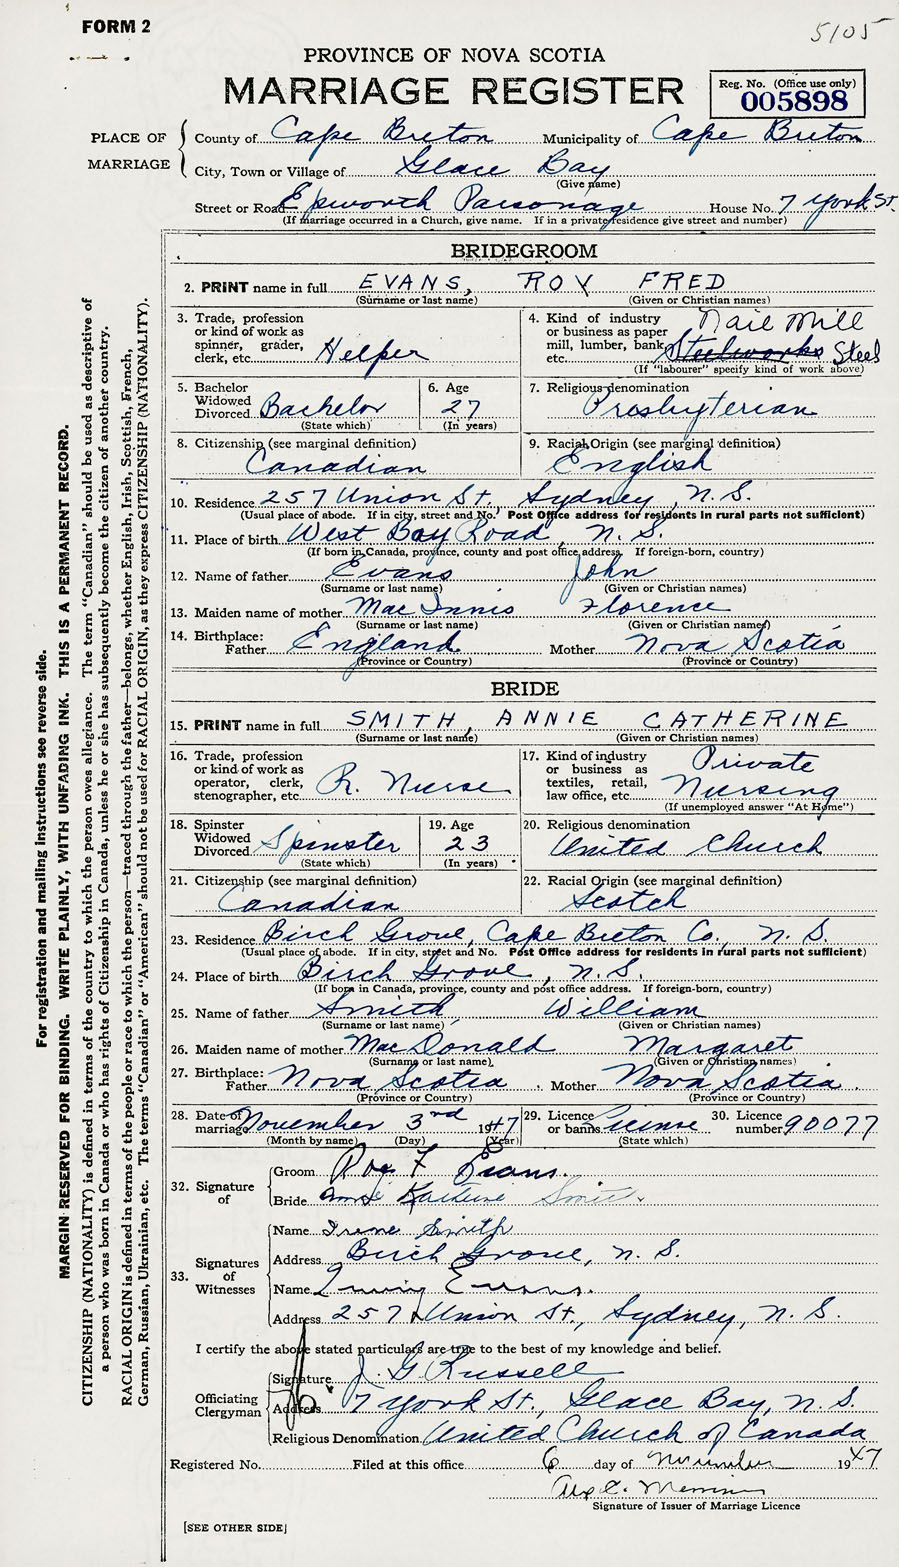 FORM 2
5105
PROVINCE OF NOVA SCOTIA
MARRIAGE REGISTER
Reg. No. (Office use only)
005898
PLACE OF MARRIAGE
County of Cape Breton Municipality of Cape Breton
City, Town or Village of Glace Bay
(Give name)
Street or Road Epworth Parsonage House No. 7 York St.
(If marriage occurred in a Church, give name. If in a private residence give street and number)
BRIDEGROOM
2. PRINT name in full EVANS, ROY FRED
(Surname or last name) (Given or Christian names)
3. Trade, profession or kind of work as spinner, grader, clerk, etc. Helper
4. Kind of industry or business as paper mill, lumber, bank, etc. Nail Mill Steelworks Steel
(If "labourer" specify kind of work above)
5. Bachelor Widowed Divorced Bachelor
(State which)
6. Age 27
(In years)
7. Religious denomination Presbyterian
8. Citizenship (see marginal definition) Canadian
9. Racial Origin (see marginal definition) English
10. Residence 257 Union St. Sydney, N.S.
(Usual place of abode. If in city, street and No. Post Office address for residents in rural parts not sufficient)
11. Place of birth West Bay Road, N.S.
(If born in Canada, province, county and post office address. If foreign-born, country)
12. Name of father Evans John
(Surname or last name) (Given or Christian names)
13. Maiden name of mother MacInnis Florence
(Surname or last name) (Given or Christian names)
14. Birthplace:
Father England Mother Nova Scotia
(Province or Country) (Province or Country)
BRIDE
15. PRINT name in full SMITH, ANNIE CATHERINE
(Surname or last name) (Given or Christian names)
16. Trade, profession or kind of work as operator, clerk, stenographer, etc. R. Nurse
17. Kind of industry or business as textiles, retail, law office, etc. Private Nursing
(If unemployed answer "At Home")
18. Spinster Widowed Divorced Spinster
(State which)
19. Age 23
(In years)
20. Religious denomination United Church
21. Citizenship (see marginal definition) Canadian
22. Racial Origin (see marginal definition) Scotch
23. Residence Birch Grove, Cape Breton Co., N.S.
(Usual place of abode. If in city, street and No. Post Office address for residents in rural parts not sufficient)
24. Place of birth Birch Grove, N.S.
(If born in Canada, province, county and post office address. If foreign-born, country)
25. Name of father Smith, William
(Surname or last name) (Given or Christian names)
26. Maiden name of mother MacDonald Margaret
(Surname or last name) (Given or Christian names)
27. Birthplace:
Father Nova Scotia Mother Nova Scotia
(Province or Country) (Province or Country)
28. Date of marriage November 3rd 1947
(Month by name) (Day) (Year)
29. Licence or banns License
(State which)
30. Licence number 90077
32. Signature of
Groom Roy F Evans.
Bride Annie Katherine Smith
33. Signatures of Witnesses
Name Irene Smith
Address Birch Grove, N.S.
Name Irving Evans.
Address 257 Union St., Sydney, N.S.
I certify the above stated particulars are true to the best of my knowledge and belief.
Officiating Clergyman
Signature J. G. Russell
Address 7 York St., Glace Bay, N.S.
Religious Denomination United Church of Canada
Registered No. Filed at this office 6 day of November 1947
Signature of Issuer of Marriage Licence
[SEE OTHER SIDE]
For registration and mailing instructions see reverse side.
MARGIN RESERVED FOR BINDING. WRITE PLAINLY, WITH UNFADING INK. THIS IS A PERMANENT RECORD.
CITIZENSHIP (NATIONALITY) is defined in terms of the country to which the person owes allegiance. The term "Canadian" should be used as descriptive of
a person who was born in Canada or who has rights of Citizenship in Canada, unless he or she has subsequently become the citizen of another country.
RACIAL ORIGIN is defined in terms of the people or race to which the person—traced through the father—belongs, whether English, Irish, Scottish, French,
German, Russian, Ukrainian, etc. The terms "Canadian" or "American" should not be used for RACIAL ORIGIN, as they express CITIZENSHIP (NATIONALITY).